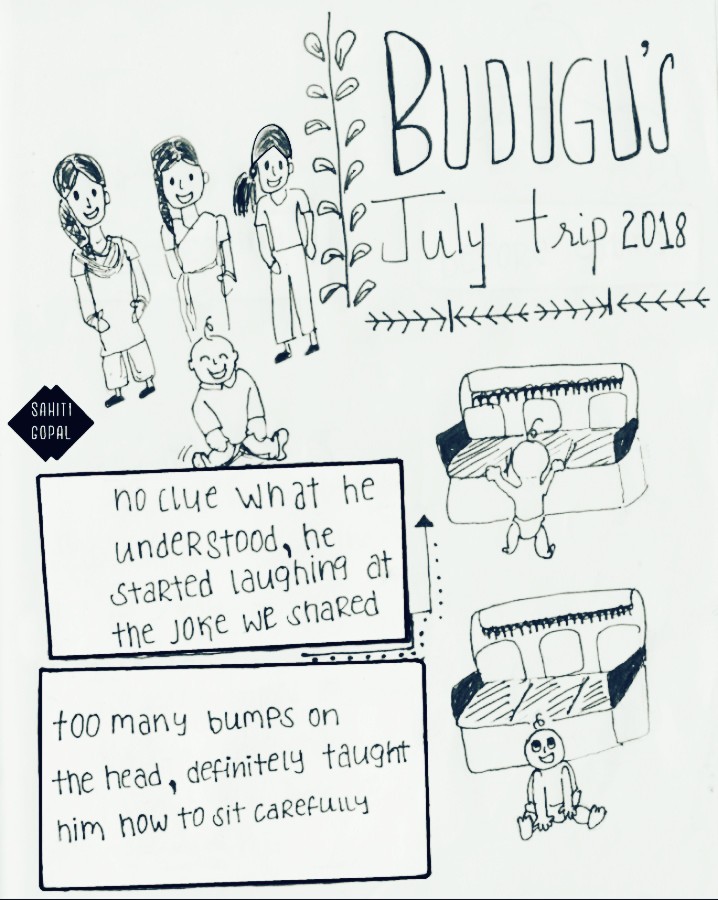 BUDUGU'S
July trip 2018
SAHITI
GOPAL
no clue what he
understood, he
started laughing at
the joke we shared
too many bumps on
the head, definitely taught
him how to sit carefully